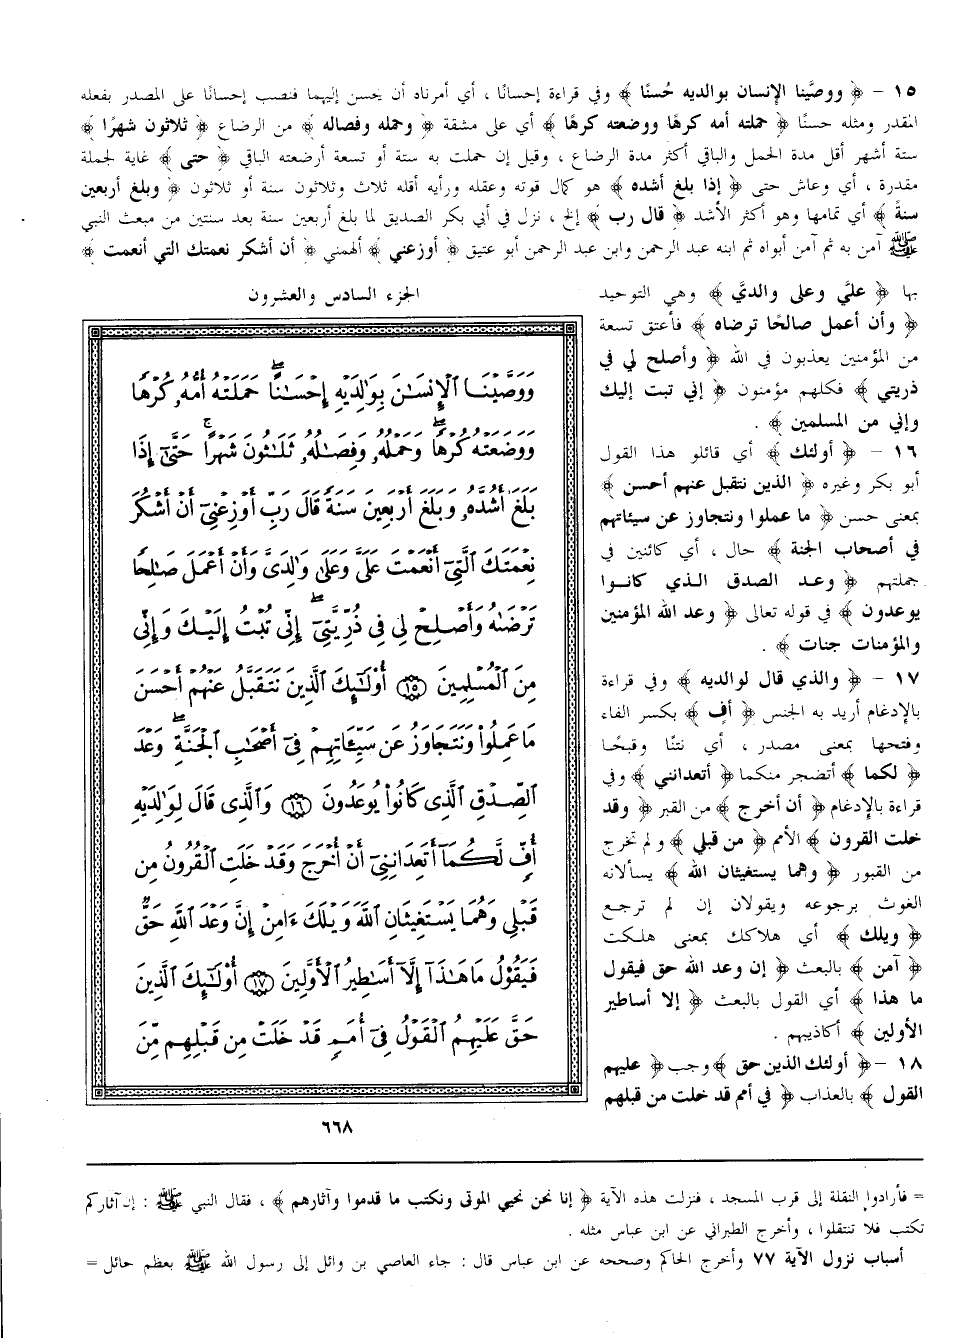 ١٥ - ﴿ ووصَّينا الإنسان بوالديه حُسنًا ﴾ وفي قراءة إحسانًا ، أي أمرناه أن يحسن إليهما فنصب إحسانًا على المصدر بفعله
المقدر ومثله حسنًا ﴿ حملته أمه كرهًا ووضعته كرهًا ﴾ أي على مشقة ﴿ وحمله وفصاله ﴾ من الرضاع ﴿ ثلاثون شهرًا ﴾
ستة أشهر أقل مدة الحمل والباقي أكثر مدة الرضاع ، وقيل إن حملت به ستة أو تسعة أرضعته الباقي ﴿ حتى ﴾ غاية لجملة
مقدرة ، أي وعاش حتى ﴿ إذا بلغ أشده ﴾ هو كمال قوته وعقله ورأيه أقله ثلاث وثلاثون سنة أو ثلاثون ﴿ وبلغ أربعين
سنةً ﴾ أي تمامها وهو أكثر الأشد ﴿ قال رب ﴾ إلخ ، نزل في أبي بكر الصديق لما بلغ أربعين سنة بعد سنتين من مبعث النبي
ﷺ آمن به ثم آمن أبواه ثم ابنه عبد الرحمن وابن عبد الرحمن أبو عتيق ﴿ أوزعني ﴾ ألهمني ﴿ أن أشكر نعمتك التي أنعمت ﴾
بها ﴿ عليَّ وعلى والديَّ ﴾ وهي التوحيد
﴿ وأن أعمل صالحًا ترضاه ﴾ فأعتق تسعة
من المؤمنين يعذبون في الله ﴿ وأصلح لي في
ذريتي ﴾ فكلهم مؤمنون ﴿ إني تبت إليك
وإني من المسلمين ﴾ .
١٦ - ﴿ أولئك ﴾ أي قائلو هذا القول
أبو بكر وغيره ﴿ الذين نتقبل عنهم أحسن ﴾
بمعنى حسن ﴿ ما عملوا ونتجاوز عن سيئاتهم
في أصحاب الجنة ﴾ حال ، أي كائنين في
جملتهم ﴿ وعد الصدق الذي كانوا
يوعدون ﴾ في قوله تعالى ﴿ وعد الله المؤمنين
والمؤمنات جنات ﴾ .
١٧ - ﴿ والذي قال لوالديه ﴾ وفي قراءة
بالإدغام أريد به الجنس ﴿ أفٍ ﴾ بكسر الفاء
وفتحها بمعنى مصدر ، أي نتنًا وقبحًا
﴿ لكما ﴾ أتضجر منكما ﴿ أتعدانني ﴾ وفي
قراءة بالإدغام ﴿ أن أخرج ﴾ من القبر ﴿ وقد
خلت القرون ﴾ الأمم ﴿ من قبلي ﴾ ولم تخرج
من القبور ﴿ وهما يستغيثان الله ﴾ يسألانه
الغوث برجوعه ويقولان إن لم ترجع
﴿ ويلك ﴾ أي هلاكك بمعنى هلكت
﴿ آمن ﴾ بالبعث ﴿ إن وعد الله حق فيقول
ما هذا ﴾ أي القول بالبعث ﴿ إلا أساطير
الأولين ﴾ أكاذيبهم .
١٨ - ﴿ أولئك الذين حق ﴾ وجب ﴿ عليهم
القول ﴾ بالعذاب ﴿ في أمم قد خلت من قبلهم
الجزء السادس والعشرون
وَوَصَّيْنَا ٱلْإِنسَٰنَ بِوَٰلِدَيْهِ إِحْسَٰنًا ۖ حَمَلَتْهُ أُمُّهُۥ كُرْهًا
وَوَضَعَتْهُ كُرْهًا ۖ وَحَمْلُهُۥ وَفِصَٰلُهُۥ ثَلَٰثُونَ شَهْرًا ۚ حَتَّىٰٓ إِذَا
بَلَغَ أَشُدَّهُۥ وَبَلَغَ أَرْبَعِينَ سَنَةً قَالَ رَبِّ أَوْزِعْنِىٓ أَنْ أَشْكُرَ
نِعْمَتَكَ ٱلَّتِىٓ أَنْعَمْتَ عَلَىَّ وَعَلَىٰ وَٰلِدَىَّ وَأَنْ أَعْمَلَ صَٰلِحًا
تَرْضَىٰهُ وَأَصْلِحْ لِى فِى ذُرِّيَّتِىٓ ۖ إِنِّى تُبْتُ إِلَيْكَ وَإِنِّى
مِنَ ٱلْمُسْلِمِينَ ١٥ أُو۟لَٰٓئِكَ ٱلَّذِينَ نَتَقَبَّلُ عَنْهُمْ أَحْسَنَ
مَا عَمِلُوا۟ وَنَتَجَاوَزُ عَن سَيِّـَٔاتِهِمْ فِىٓ أَصْحَٰبِ ٱلْجَنَّةِ ۖ وَعْدَ
ٱلصِّدْقِ ٱلَّذِى كَانُوا۟ يُوعَدُونَ ١٦ وَٱلَّذِى قَالَ لِوَٰلِدَيْهِ
أُفٍّ لَّكُمَآ أَتَعِدَانِنِىٓ أَنْ أُخْرَجَ وَقَدْ خَلَتِ ٱلْقُرُونُ مِن
قَبْلِى وَهُمَا يَسْتَغِيثَانِ ٱللَّهَ وَيْلَكَ ءَامِنْ إِنَّ وَعْدَ ٱللَّهِ حَقٌّ
فَيَقُولُ مَا هَٰذَآ إِلَّآ أَسَٰطِيرُ ٱلْأَوَّلِينَ ١٧ أُو۟لَٰٓئِكَ ٱلَّذِينَ
حَقَّ عَلَيْهِمُ ٱلْقَوْلُ فِىٓ أُمَمٍ قَدْ خَلَتْ مِن قَبْلِهِم مِّنَ
٦٦٨
= فأرادوا النقلة إلى قرب المسجد ، فنزلت هذه الآية ﴿ إنا نحن نحيي الموتى ونكتب ما قدموا وآثارهم ﴾ ، فقال النبي ﷺ : إن آثاركم
تكتب فلا تنتقلوا ، وأخرج الطبراني عن ابن عباس مثله .
أسباب نزول الآية ٧٧ وأخرج الحاكم وصححه عن ابن عباس قال : جاء العاصي بن وائل إلى رسول الله ﷺ بعظم حائل =